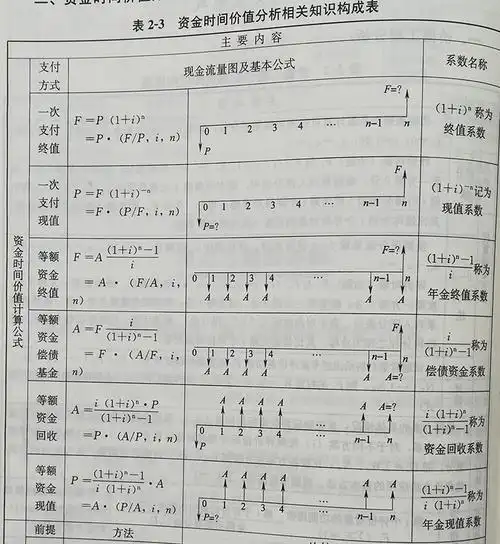 二、资金时间价值
表 2-3 资金时间价值分析相关知识构成表
主 要 内 容
支付方式
现金流量图及基本公式
系数名称
资金时间价值计算公式
一次支付终值
F=P (1+i)ⁿ
=P·(F/P, i, n)
F=?
0 1 2 3 4 … n-1 n
P
(1+i)ⁿ 称为
终值系数
一次支付现值
P=F (1+i)⁻ⁿ
=F·(P/F, i, n)
F
0 1 2 3 4 … n-1 n
P=?
(1+i)⁻ⁿ记为
现值系数
等额资金终值
F=A((1+i)ⁿ-1)/i
=A·(F/A, i, n)
F=?
0 1 2 3 4 … n-1 n
A A A A A A
((1+i)ⁿ-1)/i 称为
年金终值系数
等额资金偿债基金
A=F i/((1+i)ⁿ-1)
=F·(A/F, i, n)
F
0 1 2 3 4 … n-1 n
A A A A A A=?
i/((1+i)ⁿ-1) 称为
偿债资金系数
等额资金回收
A=(i (1+i)ⁿ·P)/((1+i)ⁿ-1)
=P·(A/P, i, n)
A A A A A A=?
0 1 2 3 4 … n-1 n
P
i (1+i)ⁿ/((1+i)ⁿ-1) 称为
资金回收系数
等额资金现值
P=((1+i)ⁿ-1)/(i (1+i)ⁿ)·A
=A·(P/A, i, n)
A A A A A A
0 1 2 3 4 … n-1 n
P=?
((1+i)ⁿ-1)/(i (1+i)ⁿ) 称为
年金现值系数
前提
方法